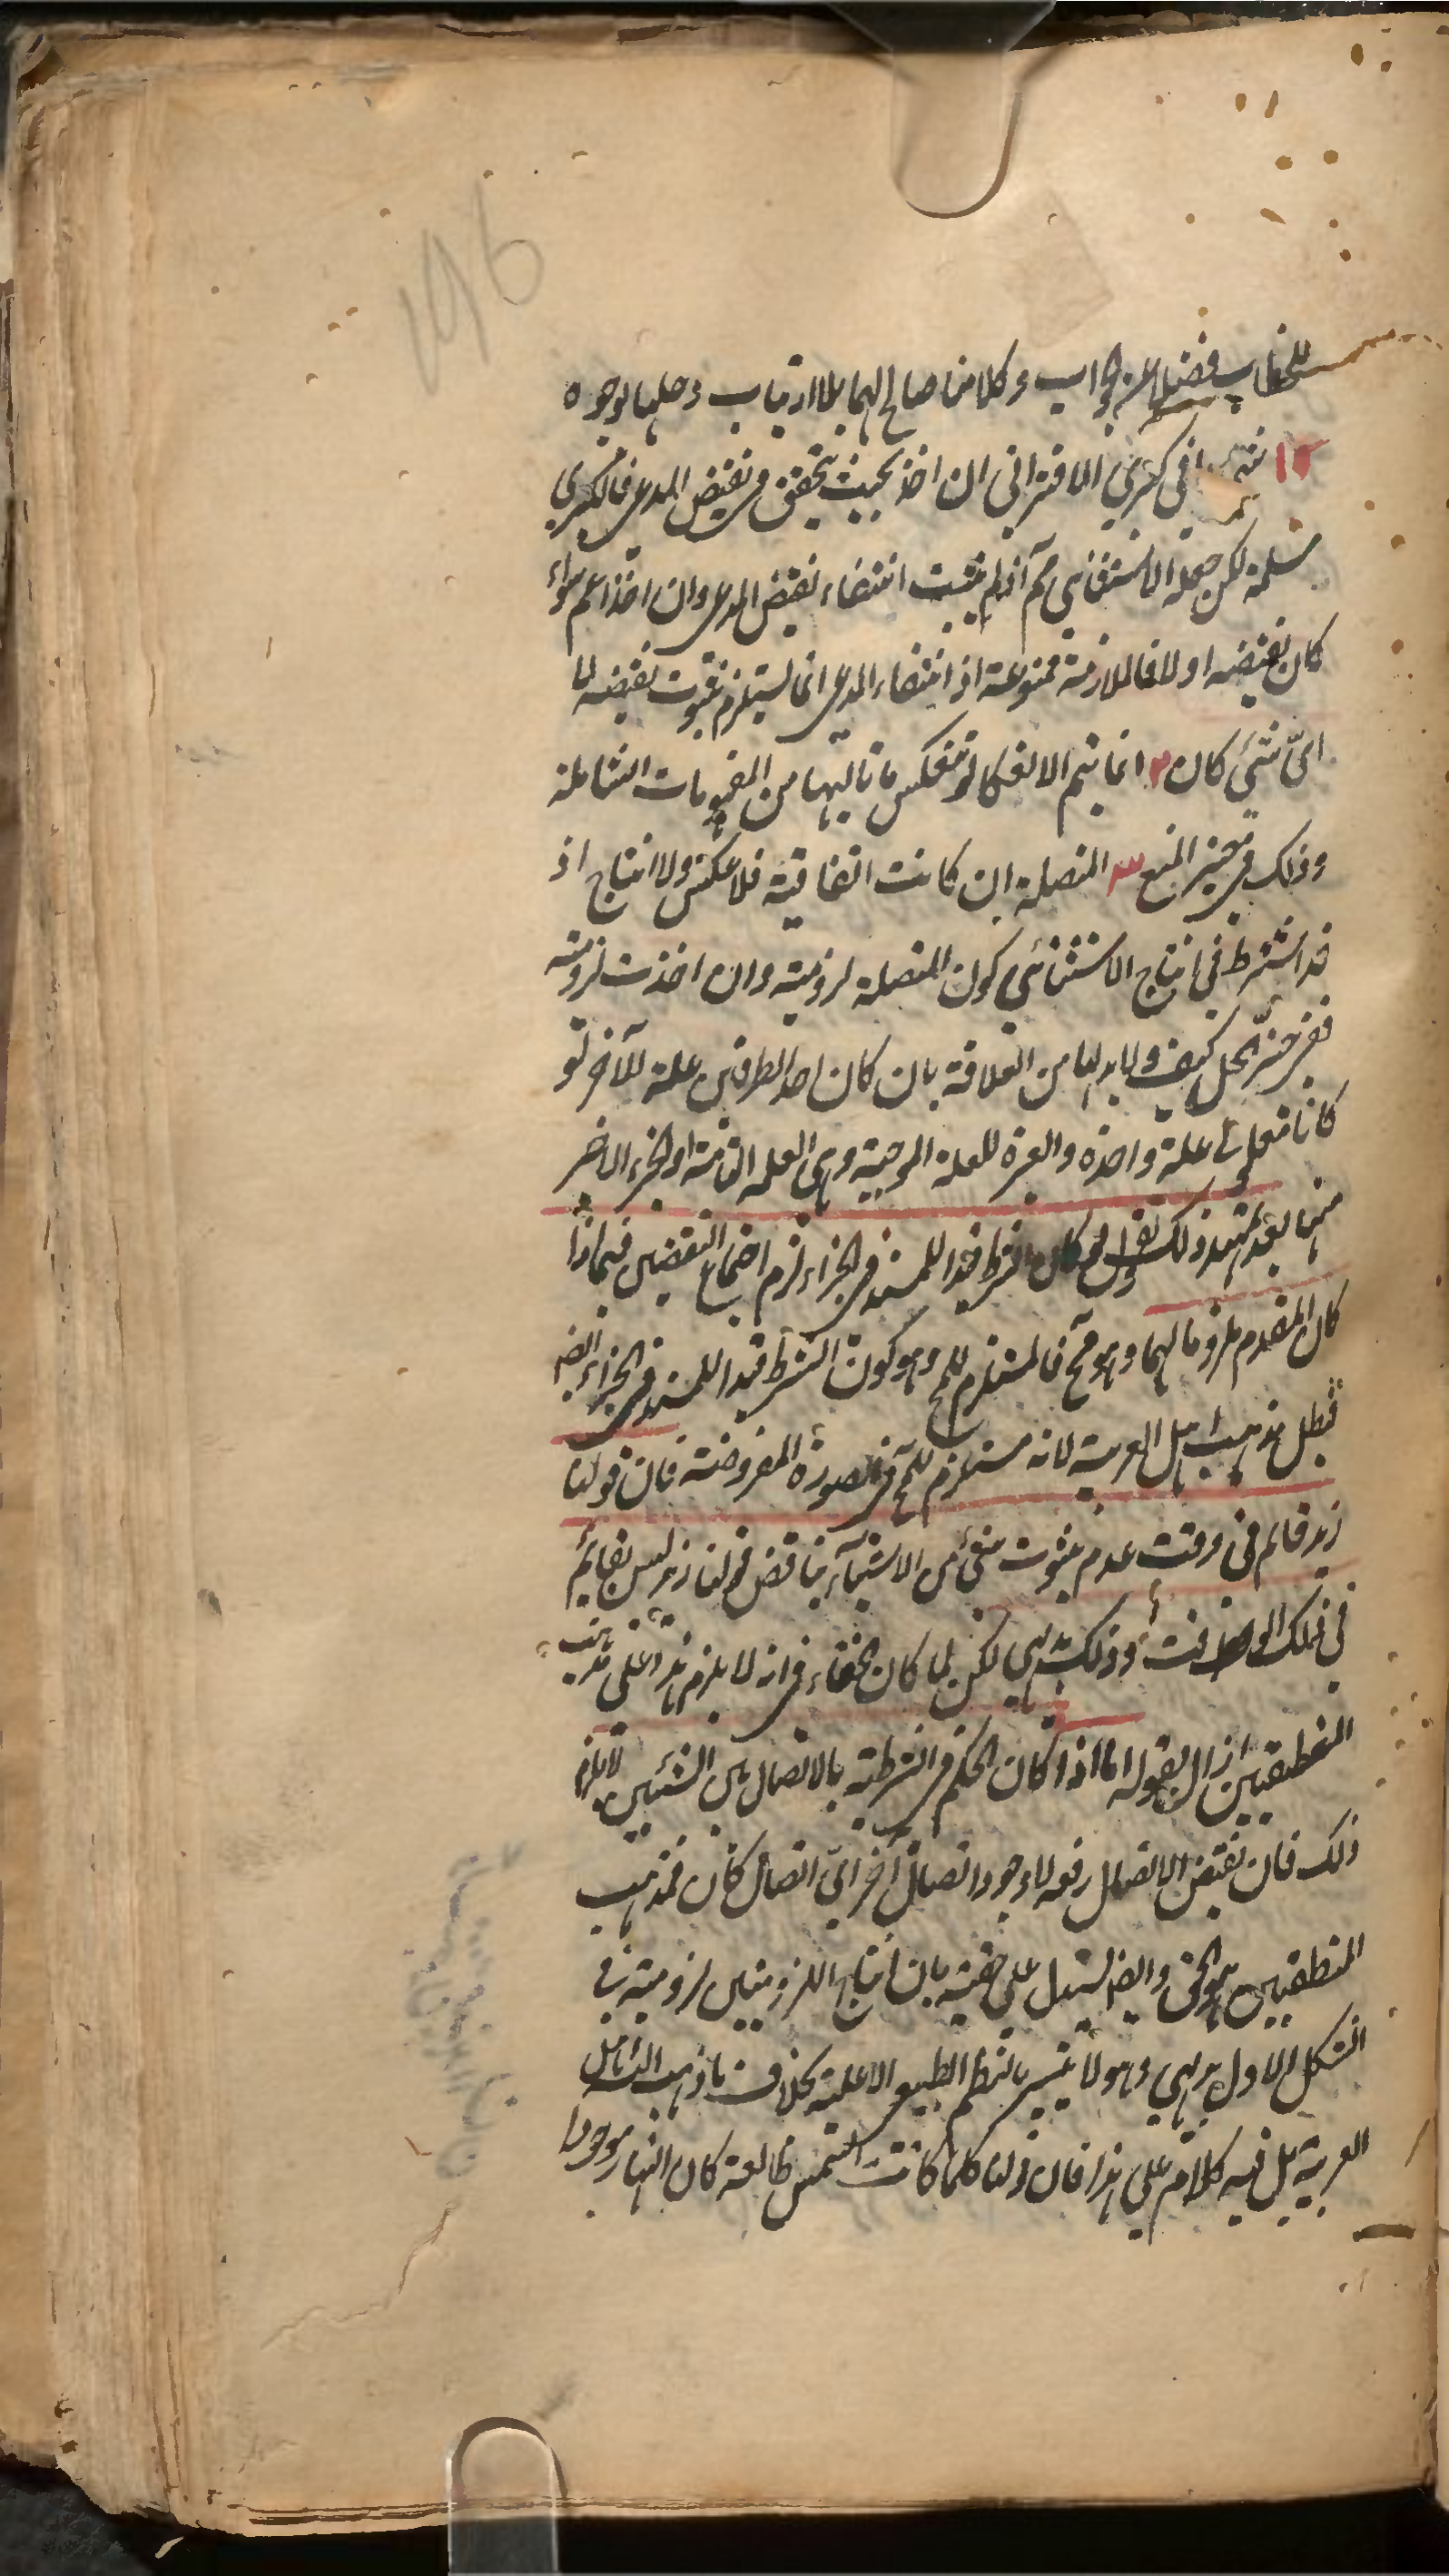 196
للخطاب فضلا عن الجواب وكلامنا صالح لهما بلا ارتياب وحلها بوجوه
١ شيء في كبرى الاقتراني ان اخذ بحيث يتحقق في نقيض المدعى فالكبرى
مسلمة لكن حملة الاستثنائي مم آ اذ لم يثبت انتفاء نقيض المدعى وان اخذ اعم سواء
كان نقيضه او لا فالملازمة ممنوعة اذ انتفاء المدعى انما يستلزم ثبوت نقيضه لا
اىّ شئ كان ٢ انما يتم الانعكاس لو تنعكس ما تاليها من المفهومات الشاملة
وذلك في حيز المنع ٣ المتصلة ان كانت اتفاقية فلا عكس ولا انتاج اذ
قد اشترط في انتاج الاستثنائي كون المتصلة لزومية وان اخذت لزومية
ففي حيّز الحل كيف ولا بد لها من العلاقة بان كان احد الطرفين علة للآخر او
كانا معلولي علة واحدة والعبرة للعلة الموجبة وهي العلة التامة او الجزء الاخر
منها بعد تمهيد ذلك نقول لو كان الشرط قيدا للمسند في الجزاء لزم اجتماع النقيضين فيما اذا
كان المقدم ملزوما لهما وهو مح فالمستلزم للمح وهو كون الشرط قيدا للمسند في الجزاء ايضا
فبطل مذهب اهل العربية لانه مستلزم للمح في الصورة المفروضة فان قولنا
زيد قائم في وقت عدم ثبوت شئ من الاشياء يناقض قولنا زيد ليس بقائم
في ذلك الوقت وذلك بديهي لكن لما كان الخفاء في انه لا يلزم هذا على مذهب
المنطقيين ازال بقوله اما اذا كان الحكم في الشرطية بالاتصال بين الشيئين لا يلزم
ذلك فان نقيض الاتصال رفعه لا وجود اتصال آخر ايّ اتصال كان فمذهب
المنطقيين هو الحق وايضا يستدل على حقيته بان انتاج اللزوميتين لزومية في
الشكل الاول بديهي وهو لا يتيسر بالنظم الطبيعي الا عليه بخلاف ما ذهب اليه اهل
العربية بل فيه كلام على هذا فان قولنا كلما كانت الشمس طالعة كان النهار موجودا